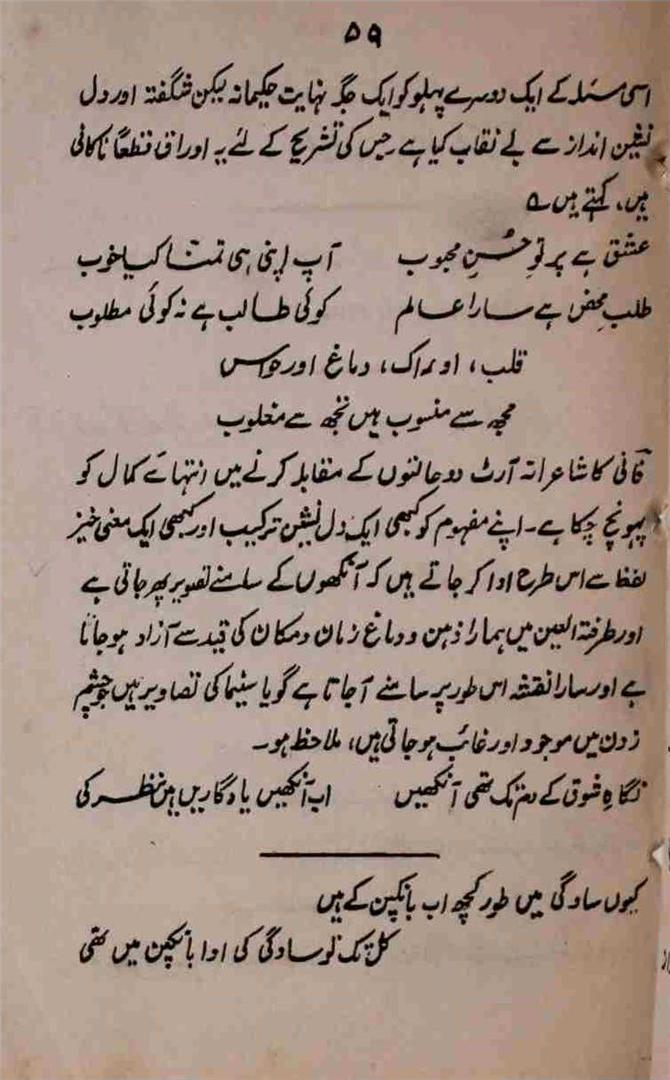 ۵۹
اسی مسئلہ کے ایک دوسرے پہلو کو ایک جگہ نہایت حکیمانہ لیکن شگفتہ اور دل
نشین انداز سے بے نقاب کیا ہے جس کی تشریح کے لئے یہ اوراق قطعاً ناکافی
ہیں، کہتے ہیں ؎
عشق ہے پرتوِ حُسنِ محبوب آپ اپنی ہی تمنا کیا خوب
طلب محض ہے سارا عالم کوئی طالب ہے نہ کوئی مطلوب
قلب، ادراک، دماغ اور حواس
مجھ سے منسوب ہیں تجھ سے مغلوب
فانی کا شاعرانہ آرٹ دو حالتوں کے مقابلہ کرنے میں انتہائے کمال کو
پہونچ چکا ہے۔ اپنے مفہوم کو کبھی ایک دل نشین ترکیب اور کبھی ایک معنی خیز
لفظ سے اس طرح ادا کر جاتے ہیں کہ آنکھوں کے سامنے تصویر پھر جاتی ہے
اور طرفۃ العین میں ہمارا ذہن و دماغ زمان و مکان کی قید سے آزاد ہو جاتا
ہے اور سارا نقشہ اس طور پر سامنے آ جاتا ہے گویا سنیما کی تصاویر ہیں جو چشم
زدن میں موجود اور غائب ہو جاتی ہیں، ملاحظہ ہو۔
نگاہِ شوق کے دم تک تھی آنکھیں اب آنکھیں یادگاریں ہیں نظر کی
کیوں سادگی میں طور کچھ اب بانکپن کے ہیں
کل تک تو سادگی کی ادا بانکپن میں تھی